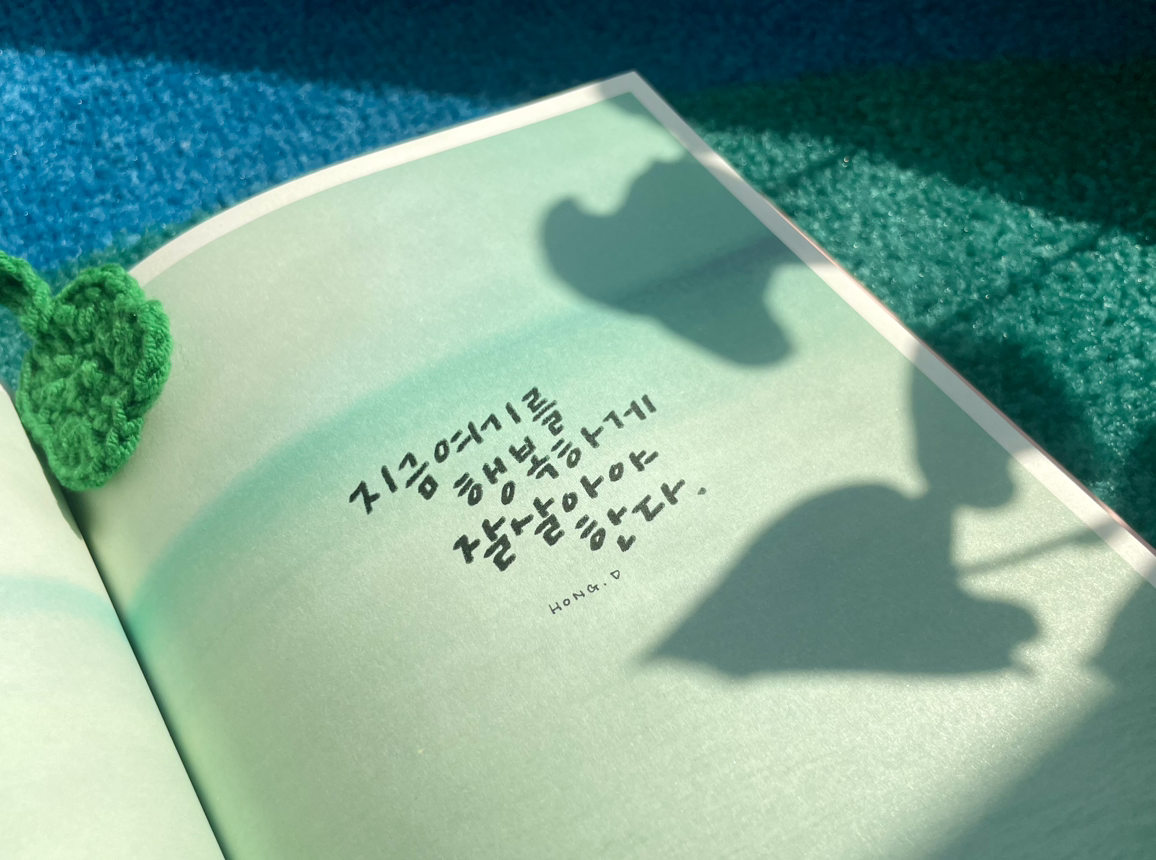 지금여기를
행복하게
잘살아야
한다.
HONG.D